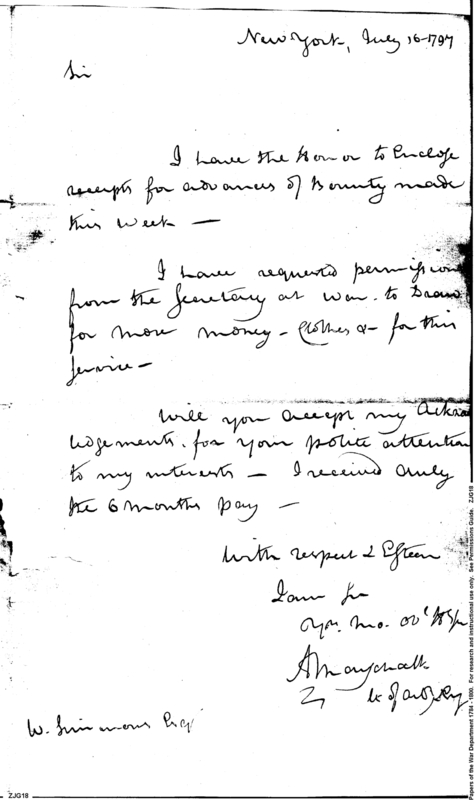 New York, July 16-1797
Sir
I have the Honor to Enclose
receipts for advances of Bounty made
this week —
I have requested permission
from the Secretary at War. to Draw
for more money - Clothes & - for this
Service -
Will you accept my Ackno
ledgements. for your polite attention
to my interests — I received duly
the 6 months pay —
With respect & Esteem
I am Sir
W. Simmons Esqr
ZJG18
Papers of the War Department 1784 - 1800. For research and instructional use only. See Permissions Guide. ZJG18